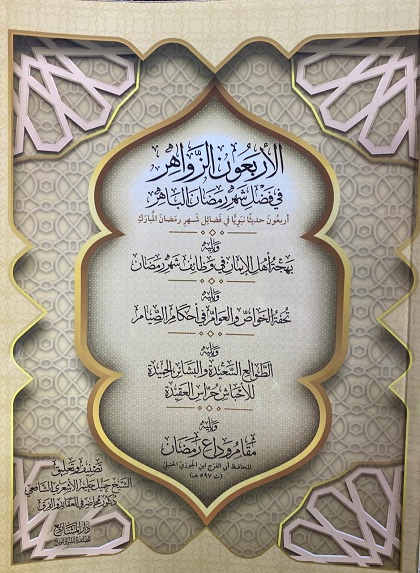 الأربعون الزواهر
في فضل شهر رمضان الباهر
أربعون حديثا نبويا في فضائل شهر رمضان المبارك
ويليه
بهجة أهل الإيمان في وظائف شهر رمضان
ويليه
تحفة الخواص والعوام في أحكام الصيام
ويليه
الطوالع السعيدة والبشائر الحميدة
للأحباش حراس العقيدة
ويليه
مقام وداع رمضان
للحافظ أبي الفرج ابن الجوزي الحنبلي
(ت ٥٩٧ هـ)
تصنيف وتعليق
الشيخ جميل حليم الأشعري الشافعي
دكتور محاضر في العقائد والفرق
دار المشاريع